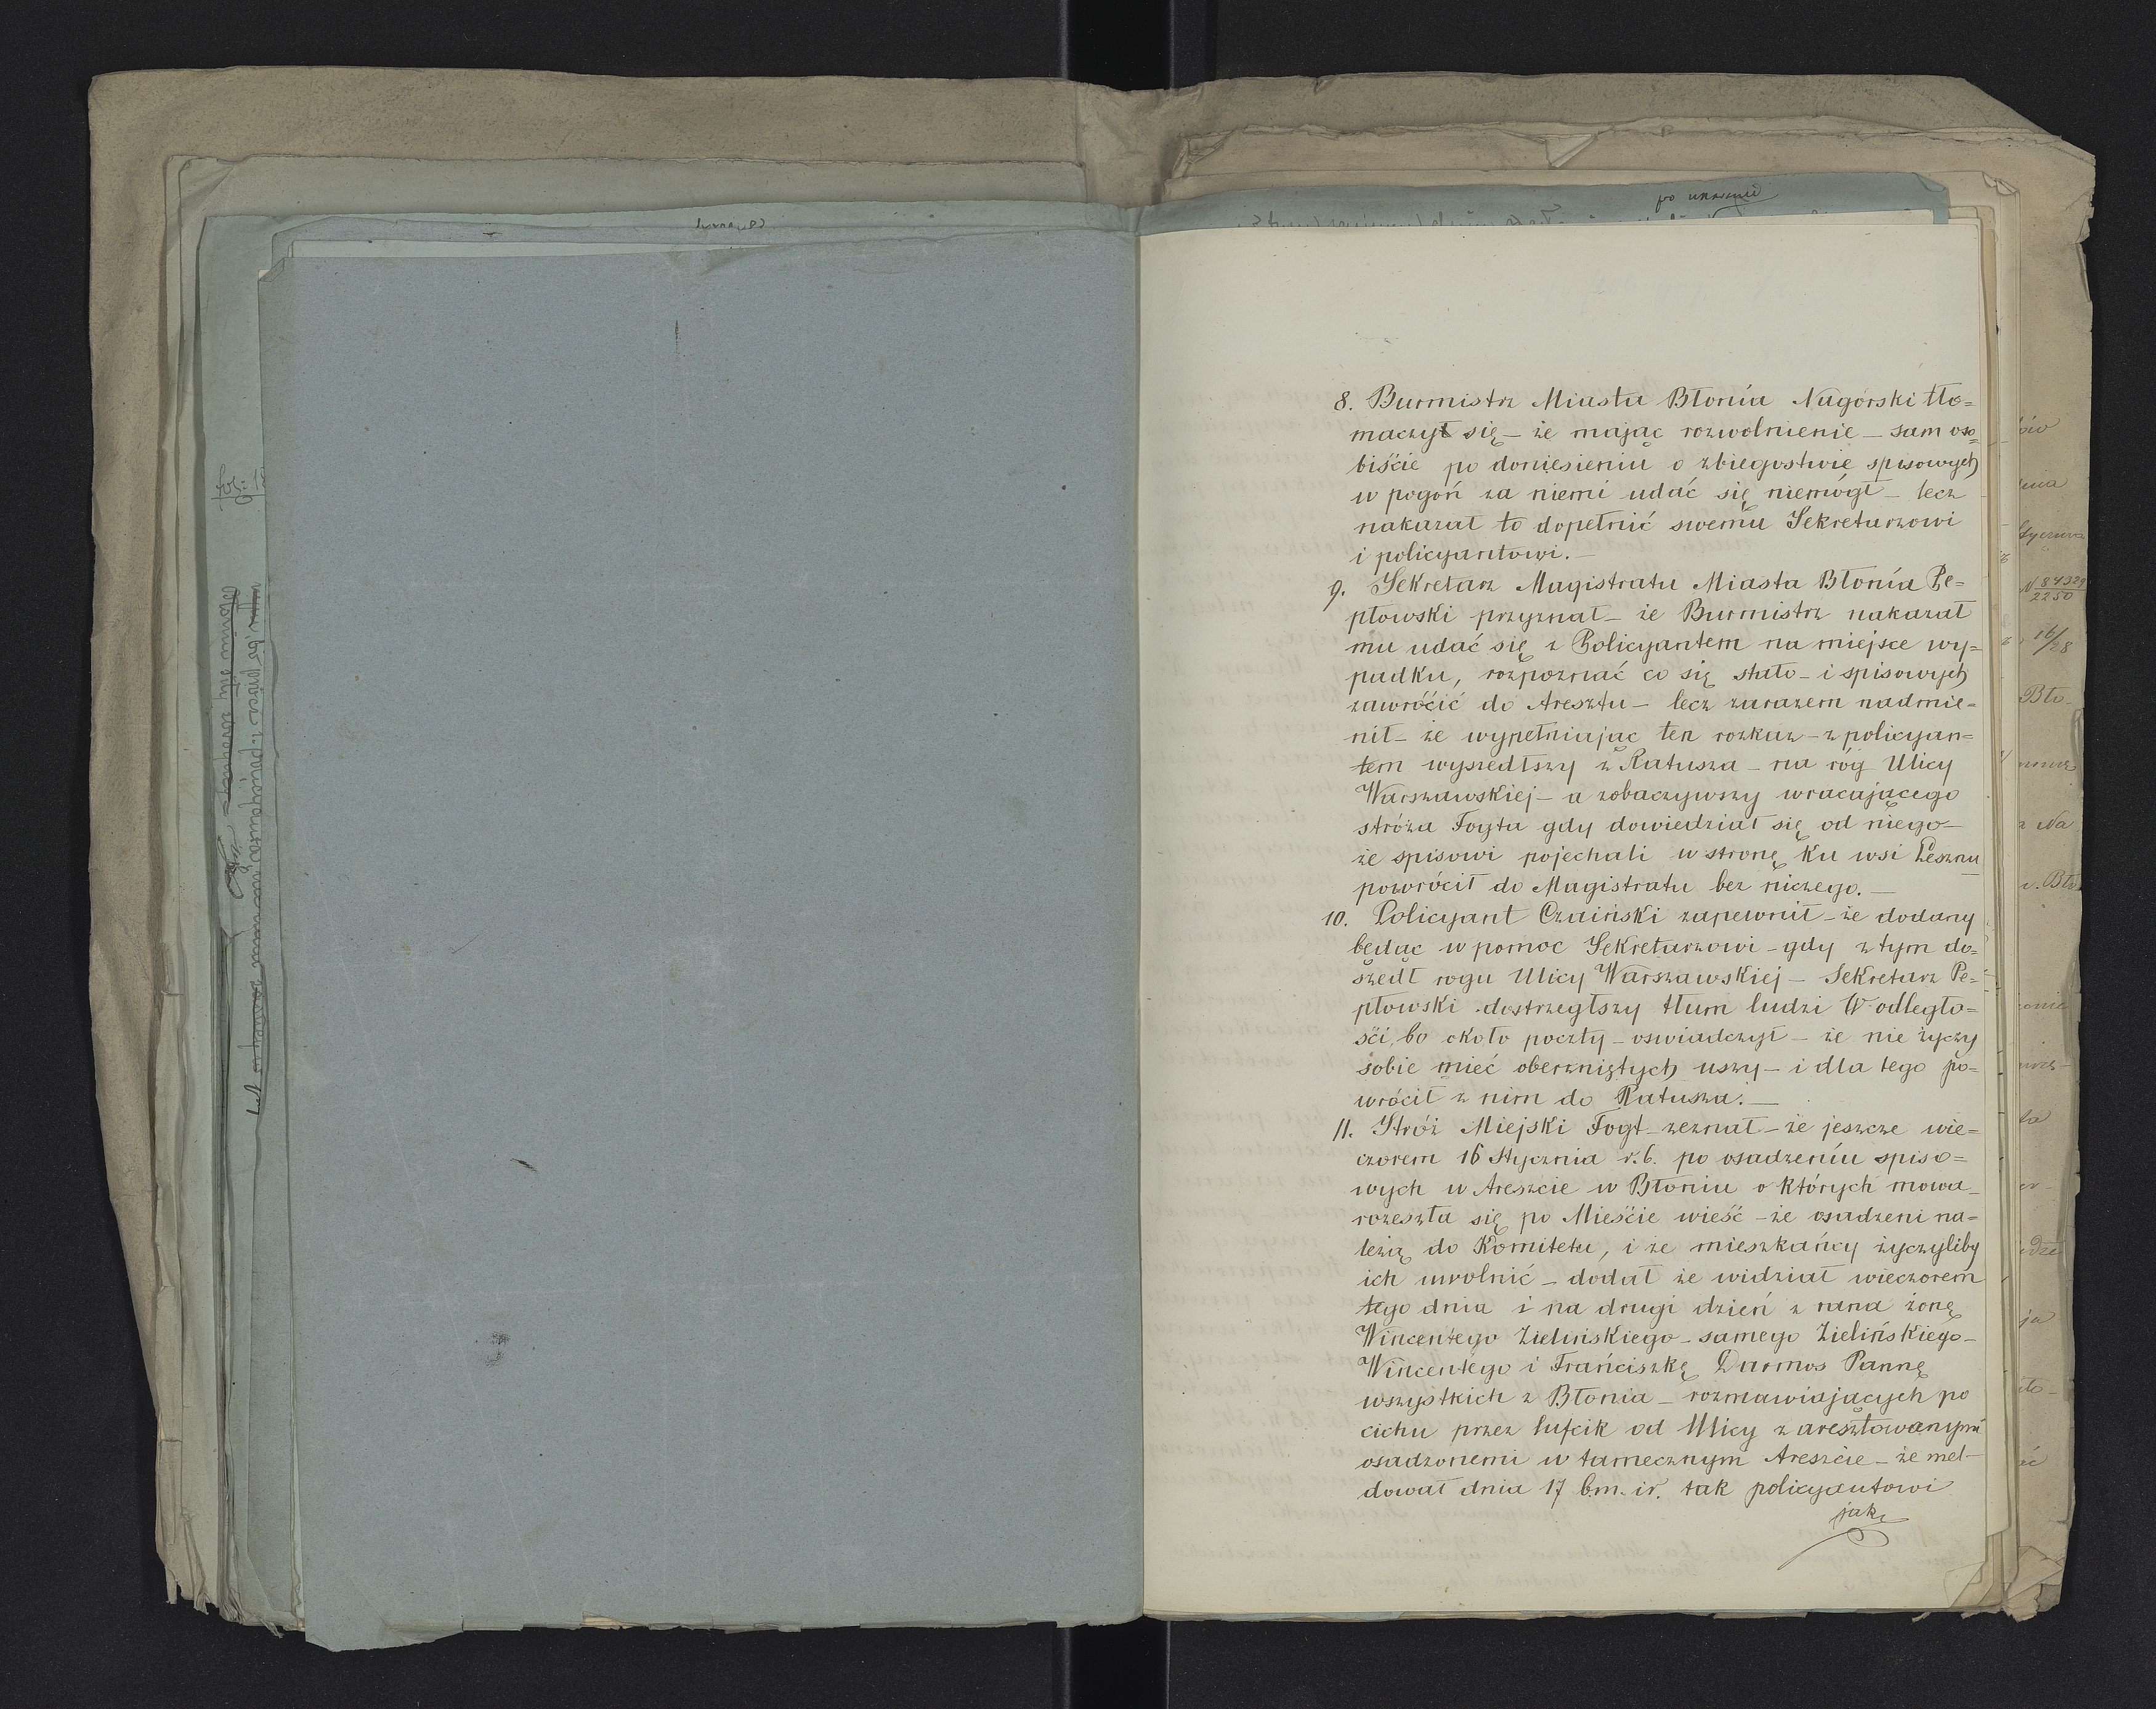 po ukazaniu
8. Burmistrz Miasta Błonia Nagórski tło=
maczył się – że mając rozwolnienie – sam oso=
biście po doniesieniu o zbiegostwie spisowych
w pogoń za niemi udać się niemógł – lecz
nakazał to dopełnić swemu Sekretarzowi
i policyantowi. –
9. Sekretarz Magistratu Miasta Błonia Pe=
płowski przyznał – że Burmistrz nakazał
mu udać się z Policyantem na miejsce wy=
padku, rozpoznać co się stało – i spisowych
zawrócić do Aresztu – lecz zarazem nadmie=
nił – że wypełniając ten rozkaz – z policyan=
tem wyszedłszy z Ratusza – na róg Ulicy
Warszawskiej – a zobaczywszy wracającego
stróża Fogta gdy dowiedział się od niego –
że spisowi pojechali w stronę ku wsi Leszna
powrócił do Magistratu bez niczego. –
10. Policyant Czaiński zapewnił – że dodany
będąc w pomoc Sekretarzowi – gdy z tym do=
szedł rogu Ulicy Warszawskiej – Sekretarz Pe=
płowski dostrzegłszy tłum ludzi w odległo=
ści, bo około poczty – oswiadczył – że nie życzy
sobie mieć oberzniętych uszy – i dla tego po=
wrócił z nim do Ratusza. –
11. Stróż Miejski Fogt – zeznał – że jeszcze wie=
czorem 16 Stycznia r. b. po osadzeniu spiso=
wych w Areszcie w Błoniu o których mowa –
rozeszła się po Mieście wieść – że osadzeni na=
leżą do Komitetu, i że mieszkańcy życzyliby
ich uwolnić – dodał że widział wieczorem
tego dnia i na drugi dzień z rana żonę
Wincentego Zielińskiego – samego Zielińskiego –
Wincentego i Franciszkę Durmos Pannę
wszystkich z Błonia – rozmawiających po
cichu przez lufcik od Ulicy z aresztowanymi
osadzonemi w tamecznym Areszcie – że mel=
dował dnia 17 b.m. i r. tak policyantowi
jak
N 84329
2250
16/28
Bło